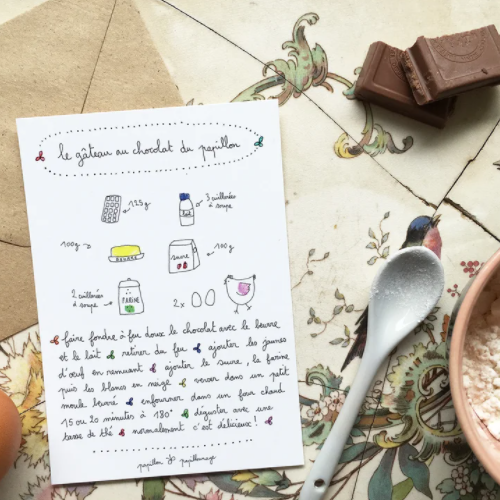 le gâteau au chocolat du papillon
125g
3 cuillerées
à soupe
lait
100g
BEURRE
sucre
100g
2 cuillerées
à soupe
FARINE
2x
faire fondre à feu doux le chocolat avec le beurre
et le lait retirer du feu ajouter les jaunes
d'œuf en remuant ajouter le sucre, la farine
puis les blancs en neige verser dans un petit
moule beurré enfourner dans un four chaud
15 ou 20 minutes à 180° déguster avec une
tasse de thé normalement c'est délicieux!
papillon papillonnage